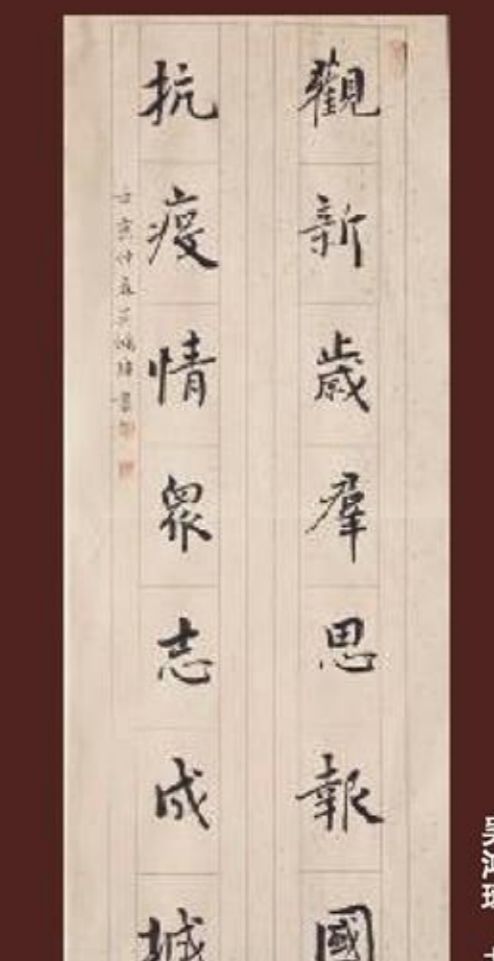 觀新歲羣思報國
抗疫情眾志成城
吳鴻